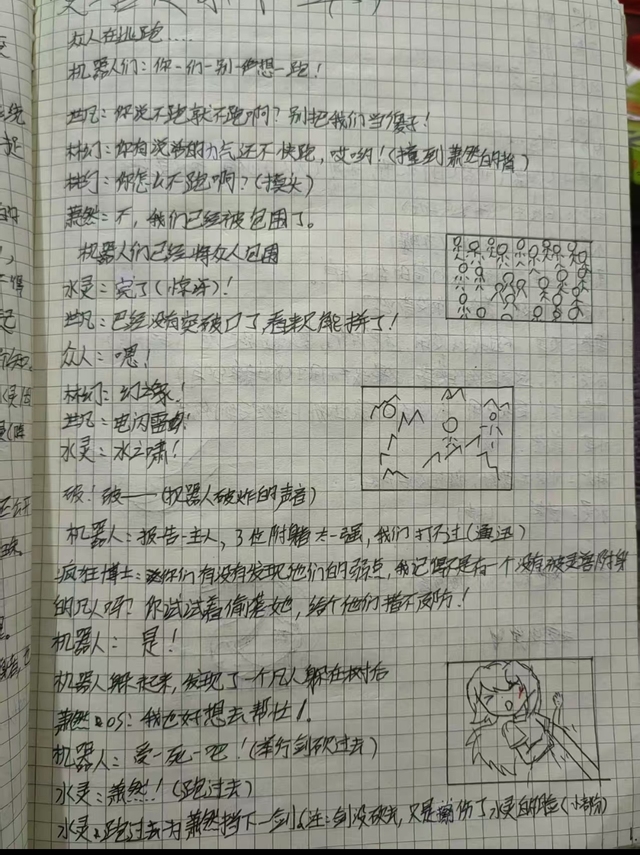 众人在逃跑……
机器人们:你一们一别一想一跑!
世凡:你说不跑就不跑啊?别把我们当傻子!
林幻:你有说话的力气还不快跑,哎哟!(撞到萧然的背)
林幻:你怎么不跑啊?(摸头)
萧然:不,我们已经被包围了。
机器人们已经将众人包围
水灵:完了(惊讶)!
世凡:已经没有突破口了,看来只能拼了!
众人:嗯!
林幻:幻之象!
世凡:电闪雷鸣!
水灵:水之啸!
破!破——(机器人被炸的声音)
机器人:报告一主人,3位附身者太一强,我们打不过(通迅)
疯狂博士:你们有没有发现他们的弱点,我记得不是有一个没有被灵兽附身
的凡人吗?你试试着偷袭她,给个他们措不及防!
机器人:是!
机器人躲起来,发现了一个凡人躲在树后
萧然OS:我也好想去帮忙!
机器人:受一死一吧!(举行剑砍过去)
水灵:萧然!(跑过去)
水灵跑过去为萧然挡下一剑(注:剑没砍死,只是划伤了水灵的脸(小部分)